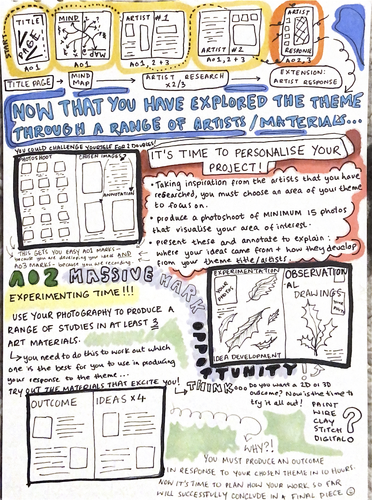 START
TITLE PAGE
MIND MAP
ARTIST #1
ARTIST #2
ARTIST RESPONSE
AO1
AO1
AO1, 2+3
AO1, 2+3
AO2, 3
TITLE PAGE
MIND MAP
ARTIST RESEARCH x2/3
EXTENSION: ARTIST RESPONSE
NOW THAT YOU HAVE EXPLORED THE THEME
THROUGH A RANGE OF ARTISTS/MATERIALS...
YOU COULD CHALLENGE YOURSELF FOR 2 DOUBLES!
PHOTOSHOOT
CHOSEN IMAGES?
ANNOTATION
IT'S TIME TO PERSONALISE YOUR
PROJECT!
• Taking inspiration from the artists that you have
researched, you must choose an area of your theme
to focus on.
• produce a photoshoot of MINIMUM 15 photos
that visualise your area of interest.
• present these and annotate to explain:
where your ideas came from + how they develop
from your theme title/artists.
THIS GETS YOU EASY AO1 MARKS -
because you are developing your ideas AND
AO3 MARKS - because you are recording.
AO2 MASSIVE MARK
OPPORTUNITY
EXPERIMENTING TIME!!!
USE YOUR PHOTOGRAPHY TO PRODUCE A
RANGE OF STUDIES IN AT LEAST 3
ART MATERIALS.
you need to do this to work out which
one is the best for you to use in producing
your response to the theme...
TRY OUT THE MATERIALS THAT EXCITE YOU!
EXPERIMENTATION
PHOTO
IDEA DEVELOPMENT
OBSERVATION
-AL
DRAWINGS
THINK... Do you want a 2D or 3D
outcome? Now is the time to
try it all out!
PAINT
WIRE
CLAY
STITCH
DIGITAL
?
OUTCOME
IDEAS x4
WHY?!
YOU MUST PRODUCE AN OUTCOME
IN RESPONSE TO YOUR CHOSEN THEME IN 10 HOURS.
NOW IT'S TIME TO PLAN HOW YOUR WORK SO FAR
WILL SUCCESSFULLY CONCLUDE IN A FINAL PIECE